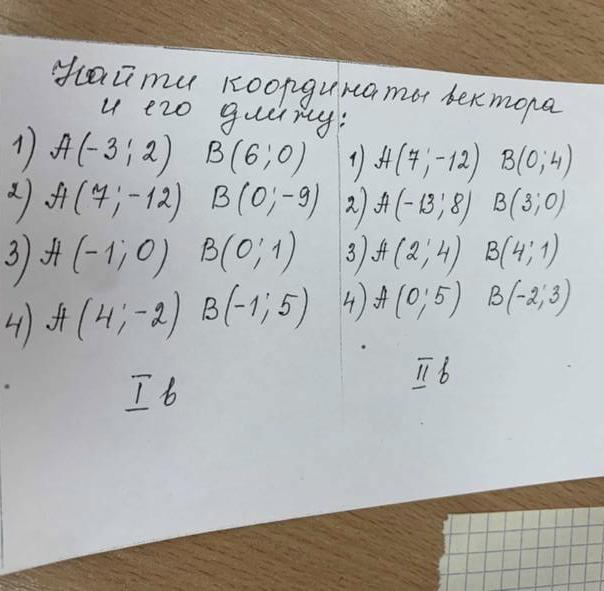 Найти координаты вектора
и его длину:
1) A(-3; 2) B(6; 0)
2) A(7; -12) B(0; -9)
3) A(-1; 0) B(0; 1)
4) A(4; -2) B(-1; 5)
I в
1) A(7; -12) B(0; 4)
2) A(-13; 8) B(3; 0)
3) A(2; 4) B(4; 1)
4) A(0; 5) B(-2; 3)
II в